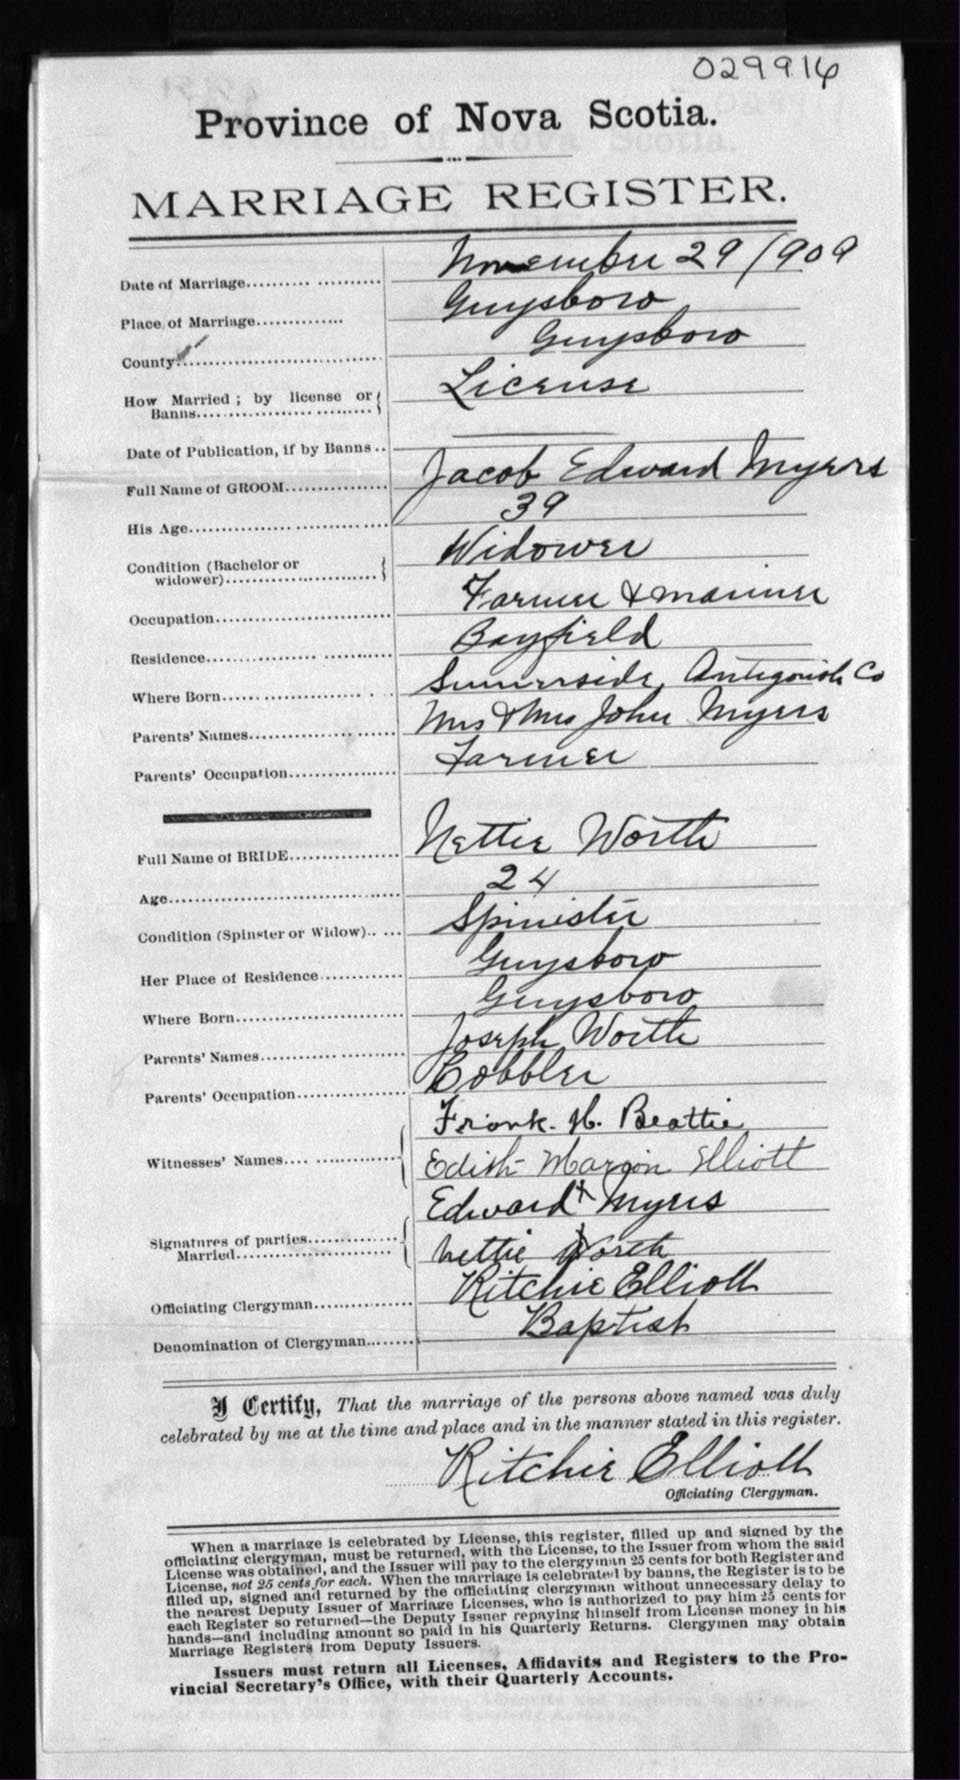 029916
Province of Nova Scotia.
MARRIAGE REGISTER.
Date of Marriage.......... .......... November 29 1909
Place of Marriage............. Guysboro
County.............................. Guysboro
How Married; by license or License
Banns.................. .........
Date of Publication, if by Banns ..
Full Name of GROOM............... Jacob Edward Myers
His Age............................. 39
Condition (Bachelor or Widower
widower)..........................
Occupation......................... Farmer & mariner
Residence............... ........... Bayfield
Where Born.................. . . Summerside, Antigonish Co
Parents' Names..................... Mrs & Mrs John Myers
Parents' Occupation................ Farmer
Full Name of BRIDE................ Nettie Worth
Age.................................. 24
Condition (Spinster or Widow).. .... Spinister
Her Place of Residence............ Guysboro
Where Born........................ Guysboro
Parents' Names.......... .......... Joseph Worth
Parents' Occupation................ Cobbler
Frank. H. Beattie
Witnesses' Names.... ............. Edith Marion Elliott
Edward x Myers
Signatures of parties..............
Married......................... Nettie x Worth
Officiating Clergyman.............. Ritchie Elliott
Denomination of Clergyman........ Baptist
I Certify, That the marriage of the persons above named was duly
celebrated by me at the time and place and in the manner stated in this register.
Ritchie Elliott
Officiating Clergyman.
When a marriage is celebrated by License, this register, filled up and signed by the
officiating clergyman, must be returned, with the License, to the Issuer from whom the said
License was obtained, and the Issuer will pay to the clergyman 25 cents for both Register and
License, not 25 cents for each. When the marriage is celebrated by banns, the Register is to be
filled up, signed and returned by the officiating clergyman without unnecessary delay to
the nearest Deputy Issuer of Marriage Licenses, who is authorized to pay him 25 cents for
each Register so returned—the Deputy Issuer repaying himself from License money in his
hands—and including amount so paid in his Quarterly Returns. Clergymen may obtain
Marriage Registers from Deputy Issuers.
Issuers must return all Licenses, Affidavits and Registers to the Pro-
vincial Secretary's Office, with their Quarterly Accounts.